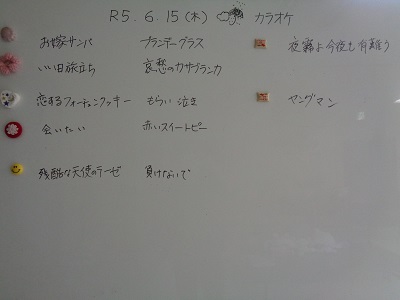 R5.6.15(木) カラオケ
お嫁サンバ ブランデーグラス 夜霧よ今夜も有難う
いい日旅立ち 哀愁のカサブランカ
恋するフォーチュンクッキー もらい泣き ヤングマン
会いたい 赤いスイートピー
残酷な天使のテーゼ 負けないで